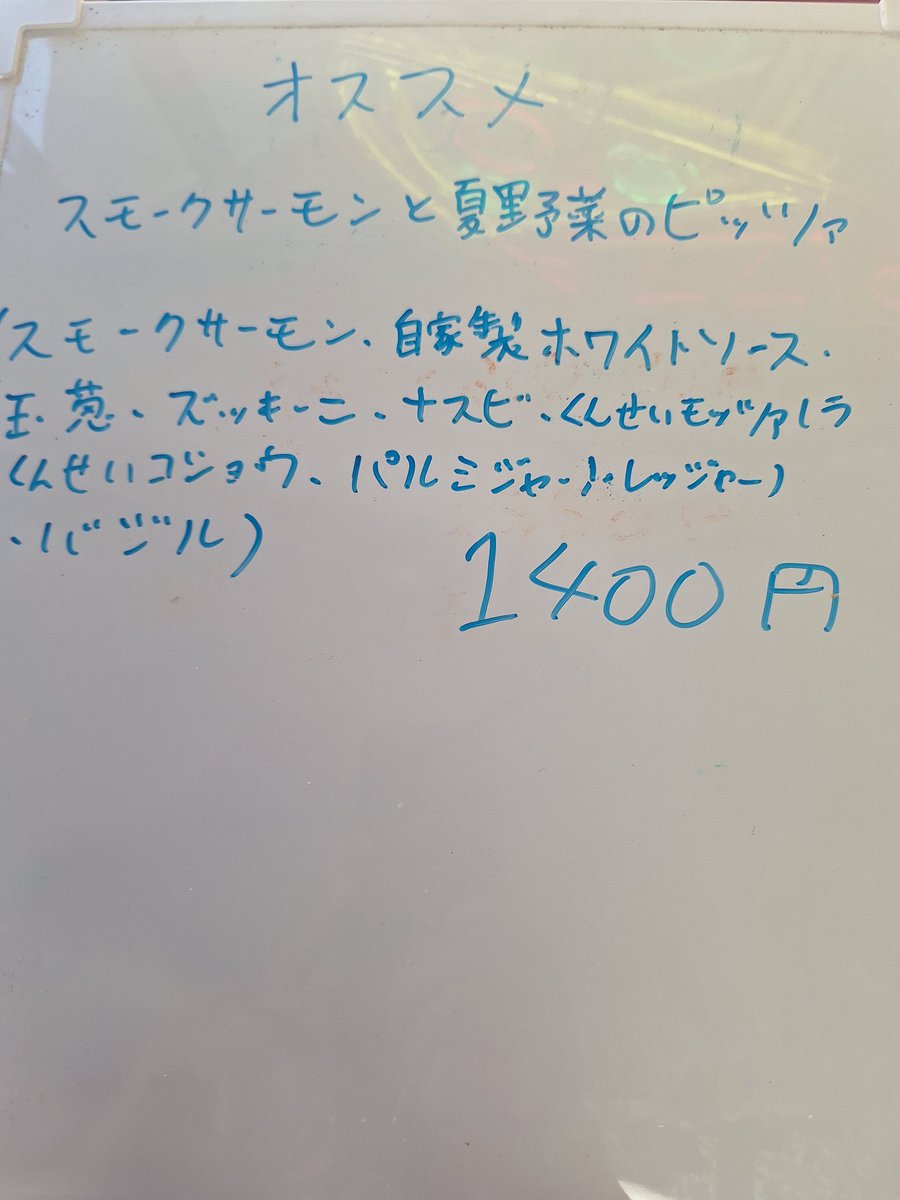 オススメ
スモークサーモンと夏野菜のピッツァ
(スモークサーモン、自家製ホワイトソース、
玉葱、ズッキーニ、ナスビ、くんせいモッツァレラ
くんせいコショウ、パルミジャーノ・レッジャーノ
、バジル)
1400円